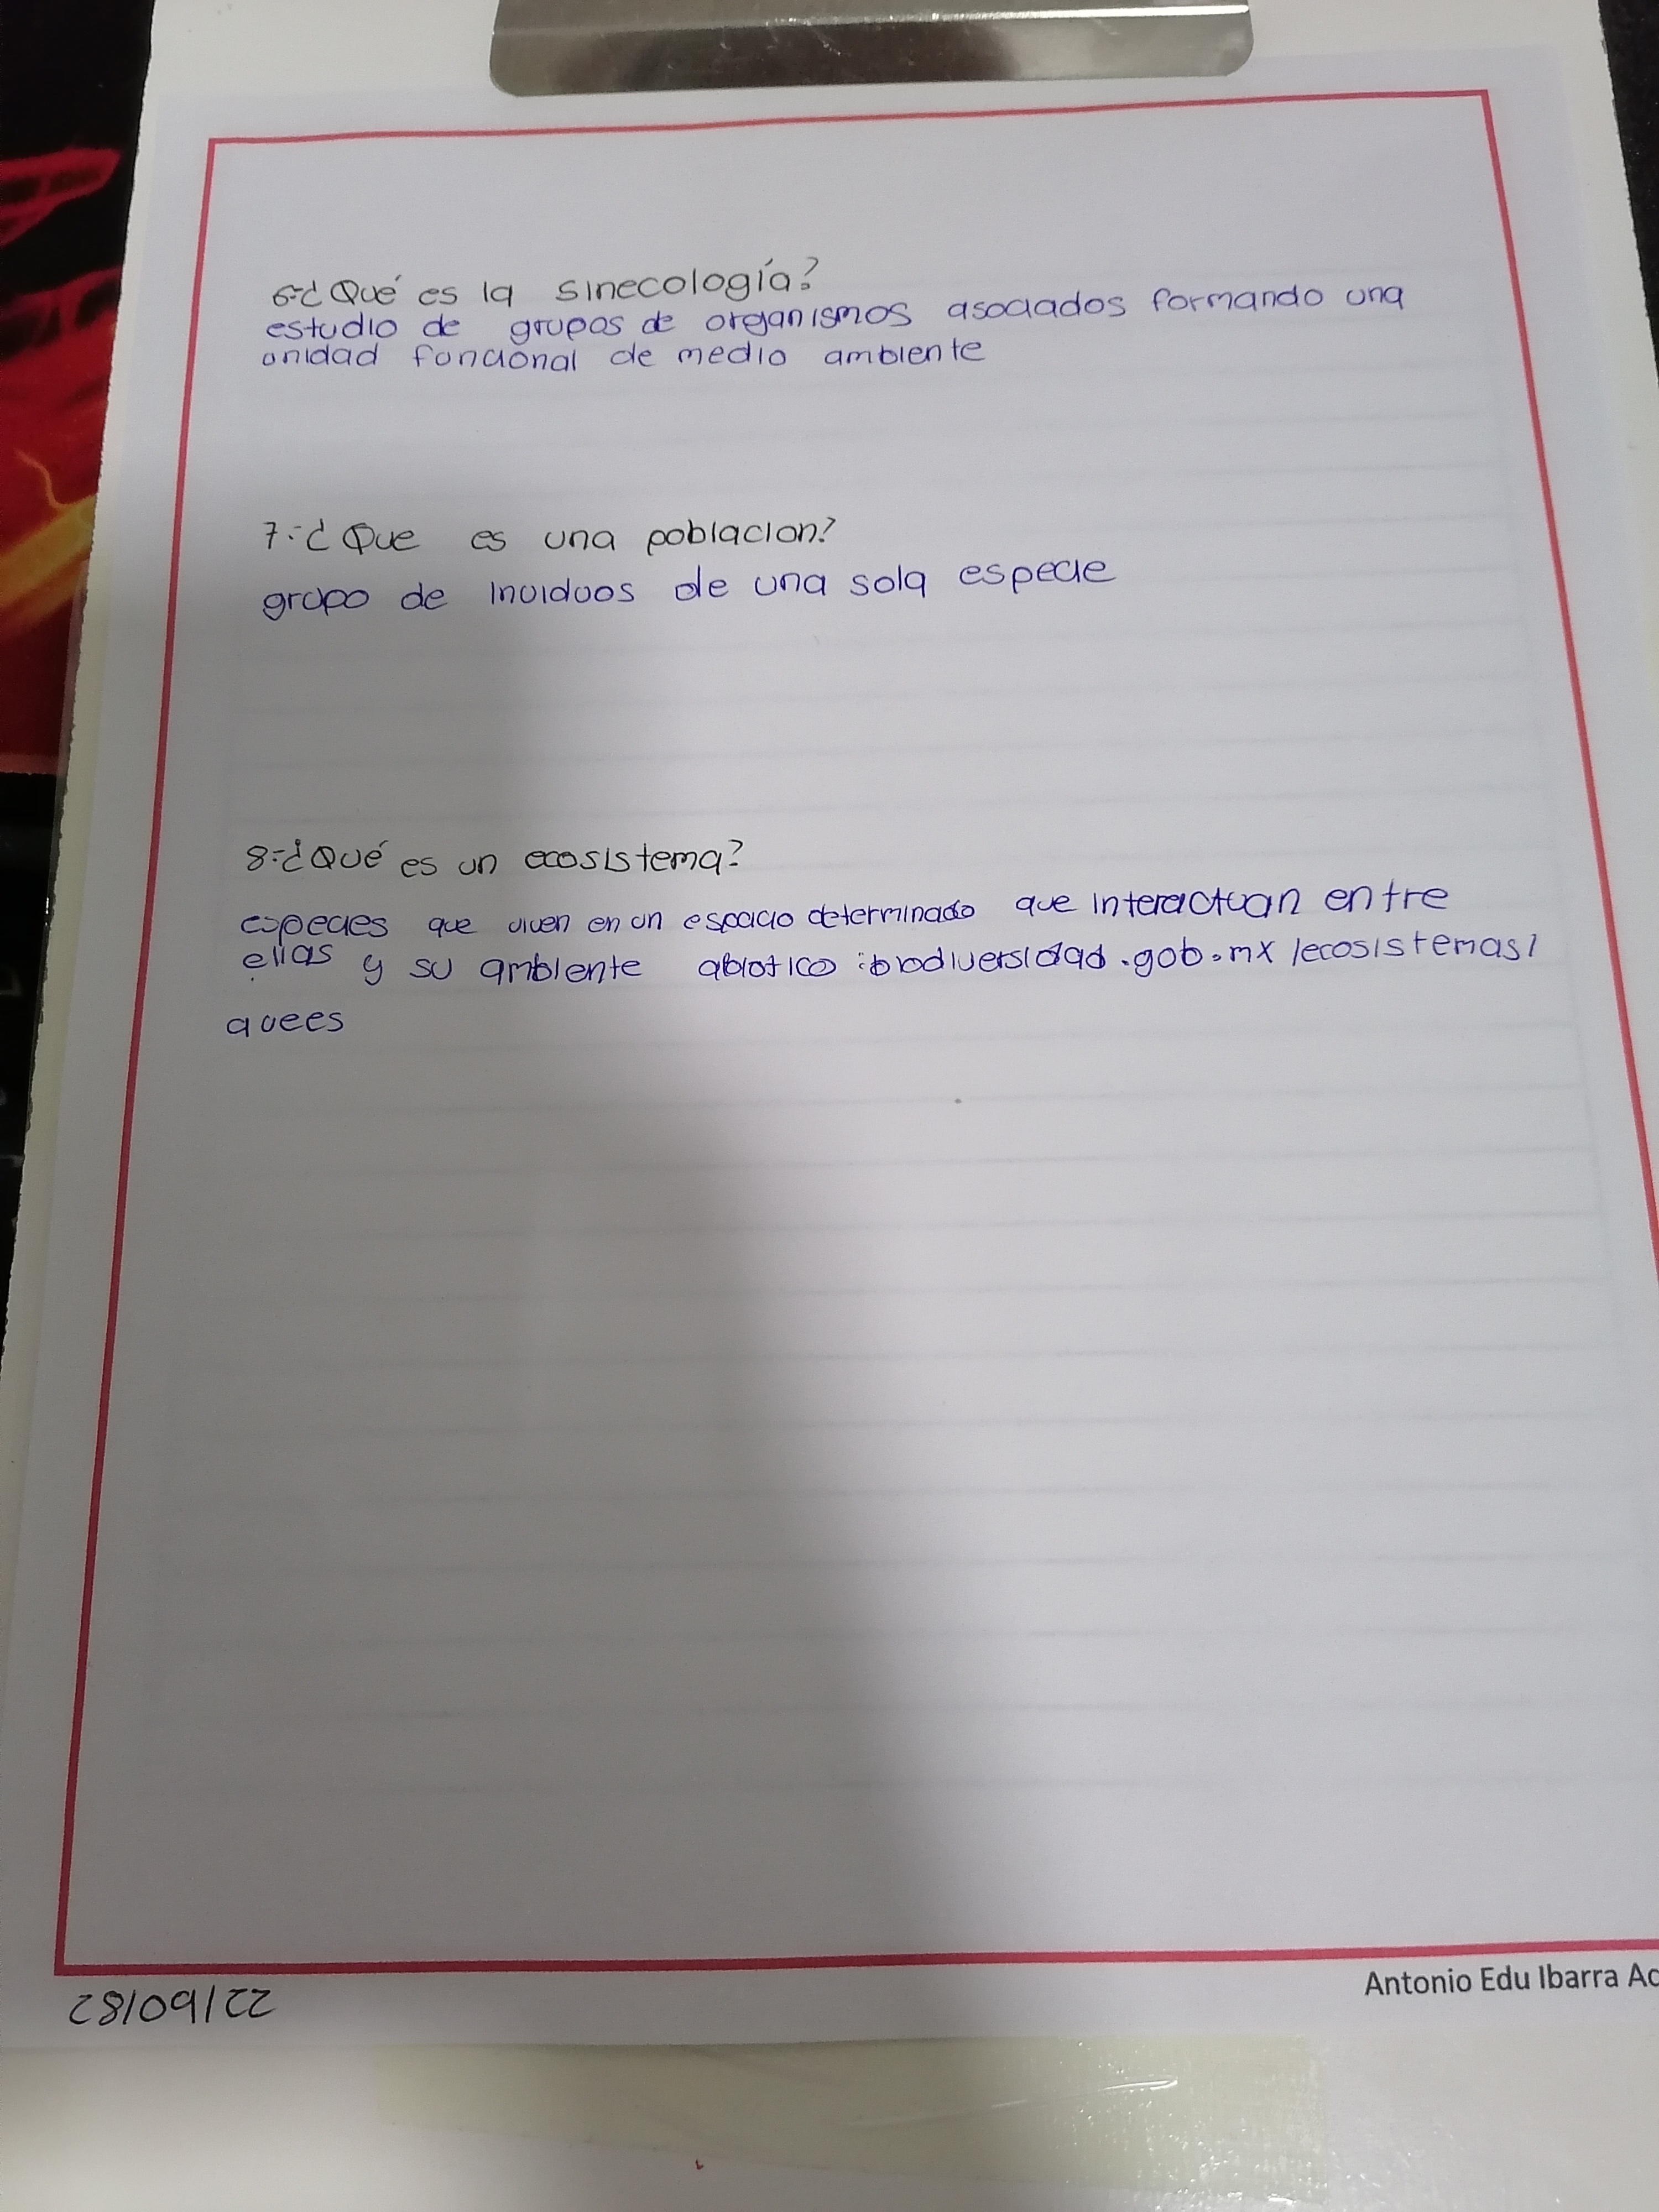 6-¿Qué es la sinecología?
estudio de grupos de organismos asociados formando una
unidad funcional de medio ambiente
7-¿Que es una poblacion?
grupo de inviduos de una sola especie
8-¿Qué es un ecosistema?
especies que viven en un espacio determinado que interactuan entre
ellas y su ambiente abiotico :biodiversidad.gob.mx/ecosistemas/
quees
Antonio Edu Ibarra Ac